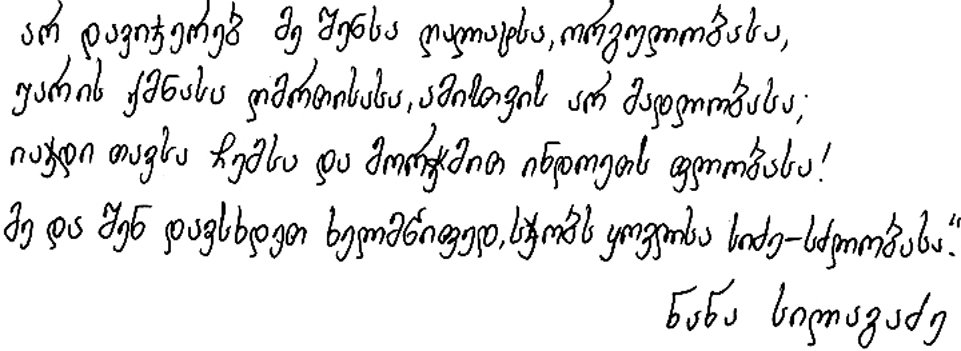 არ დავიჯერებ მე შენსა ღალატსა, ორგულობასა,
უარის ქმნასა ღმრთისასა, ამისთვის არ მადლობასა;
იაჯდი თავსა ჩემსა და მორჭმით ინდოეთს ფლობასა!
მე და შენ დავსხდეთ ხელმწიფედ, სჯობს ყოვლსა სიძე-სძლობასა."
ნანა სილაგაძე